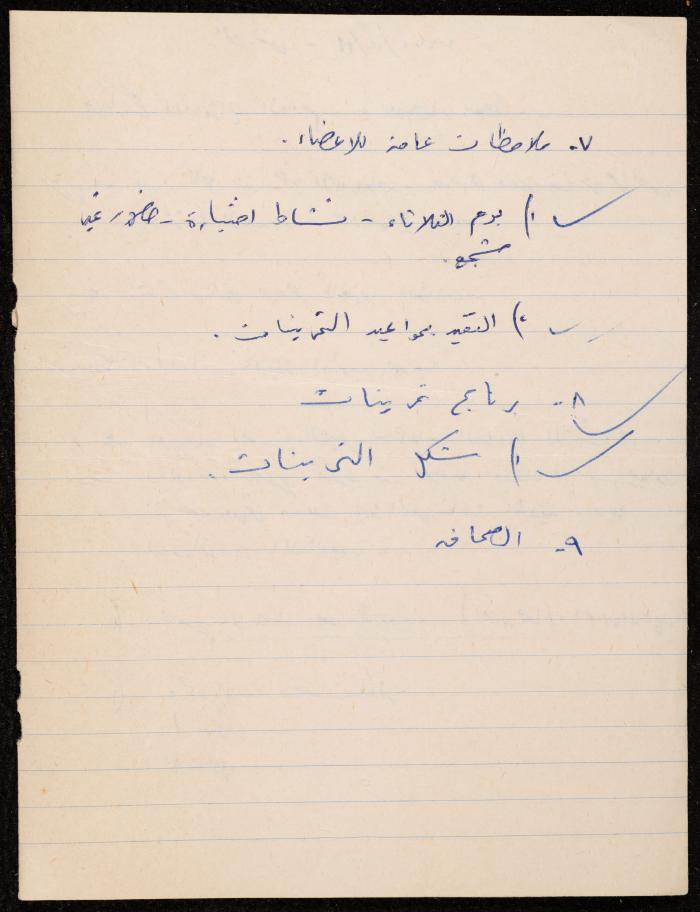 ٧- ملاحظات عامة للاعضاء.
١) يوم الثلاثاء - نشاط اختيارة - حضور غير
مشجع.
٢) التقيد بمواعيد التمرينات.
٨- برنامج تمرينات
١) شكل التمرينات.
٩- الصحافه